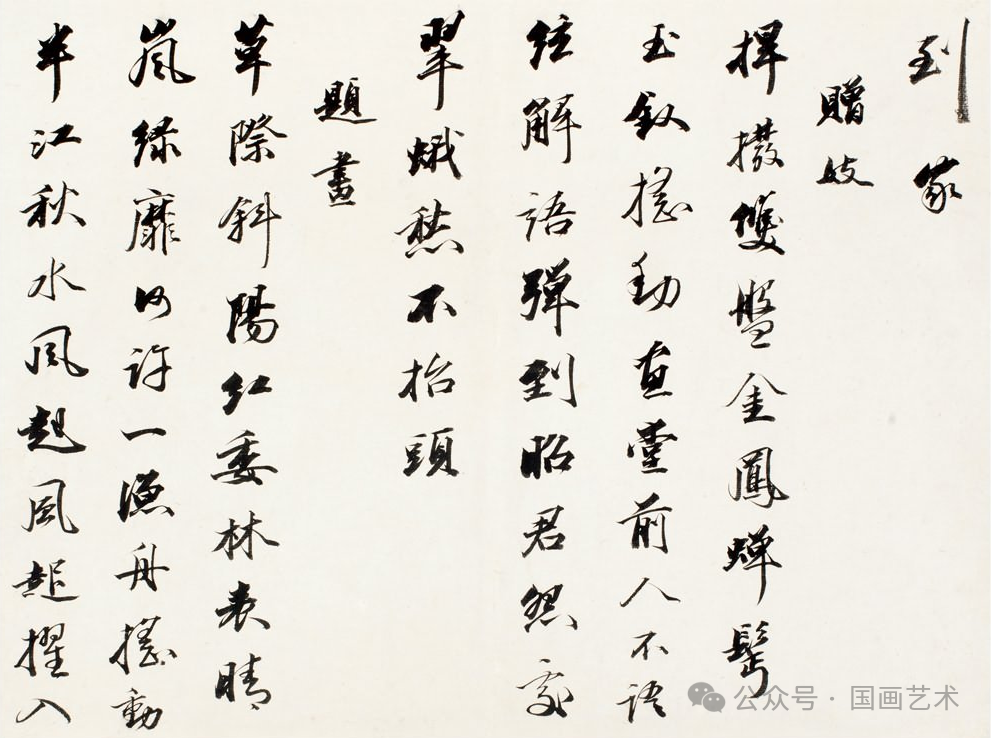 到家
贈妓
捍撥雙盤金鳳蟬髩
玉釵搖動畫堂前人不語
絃解語彈到昭君怨處
翠蛾愁不抬頭
題畫
草際斜陽紅委林表晴
嵐綠靡何許一漁舟搖動
半江秋水風起風起擢入
公众号 · 国画艺术